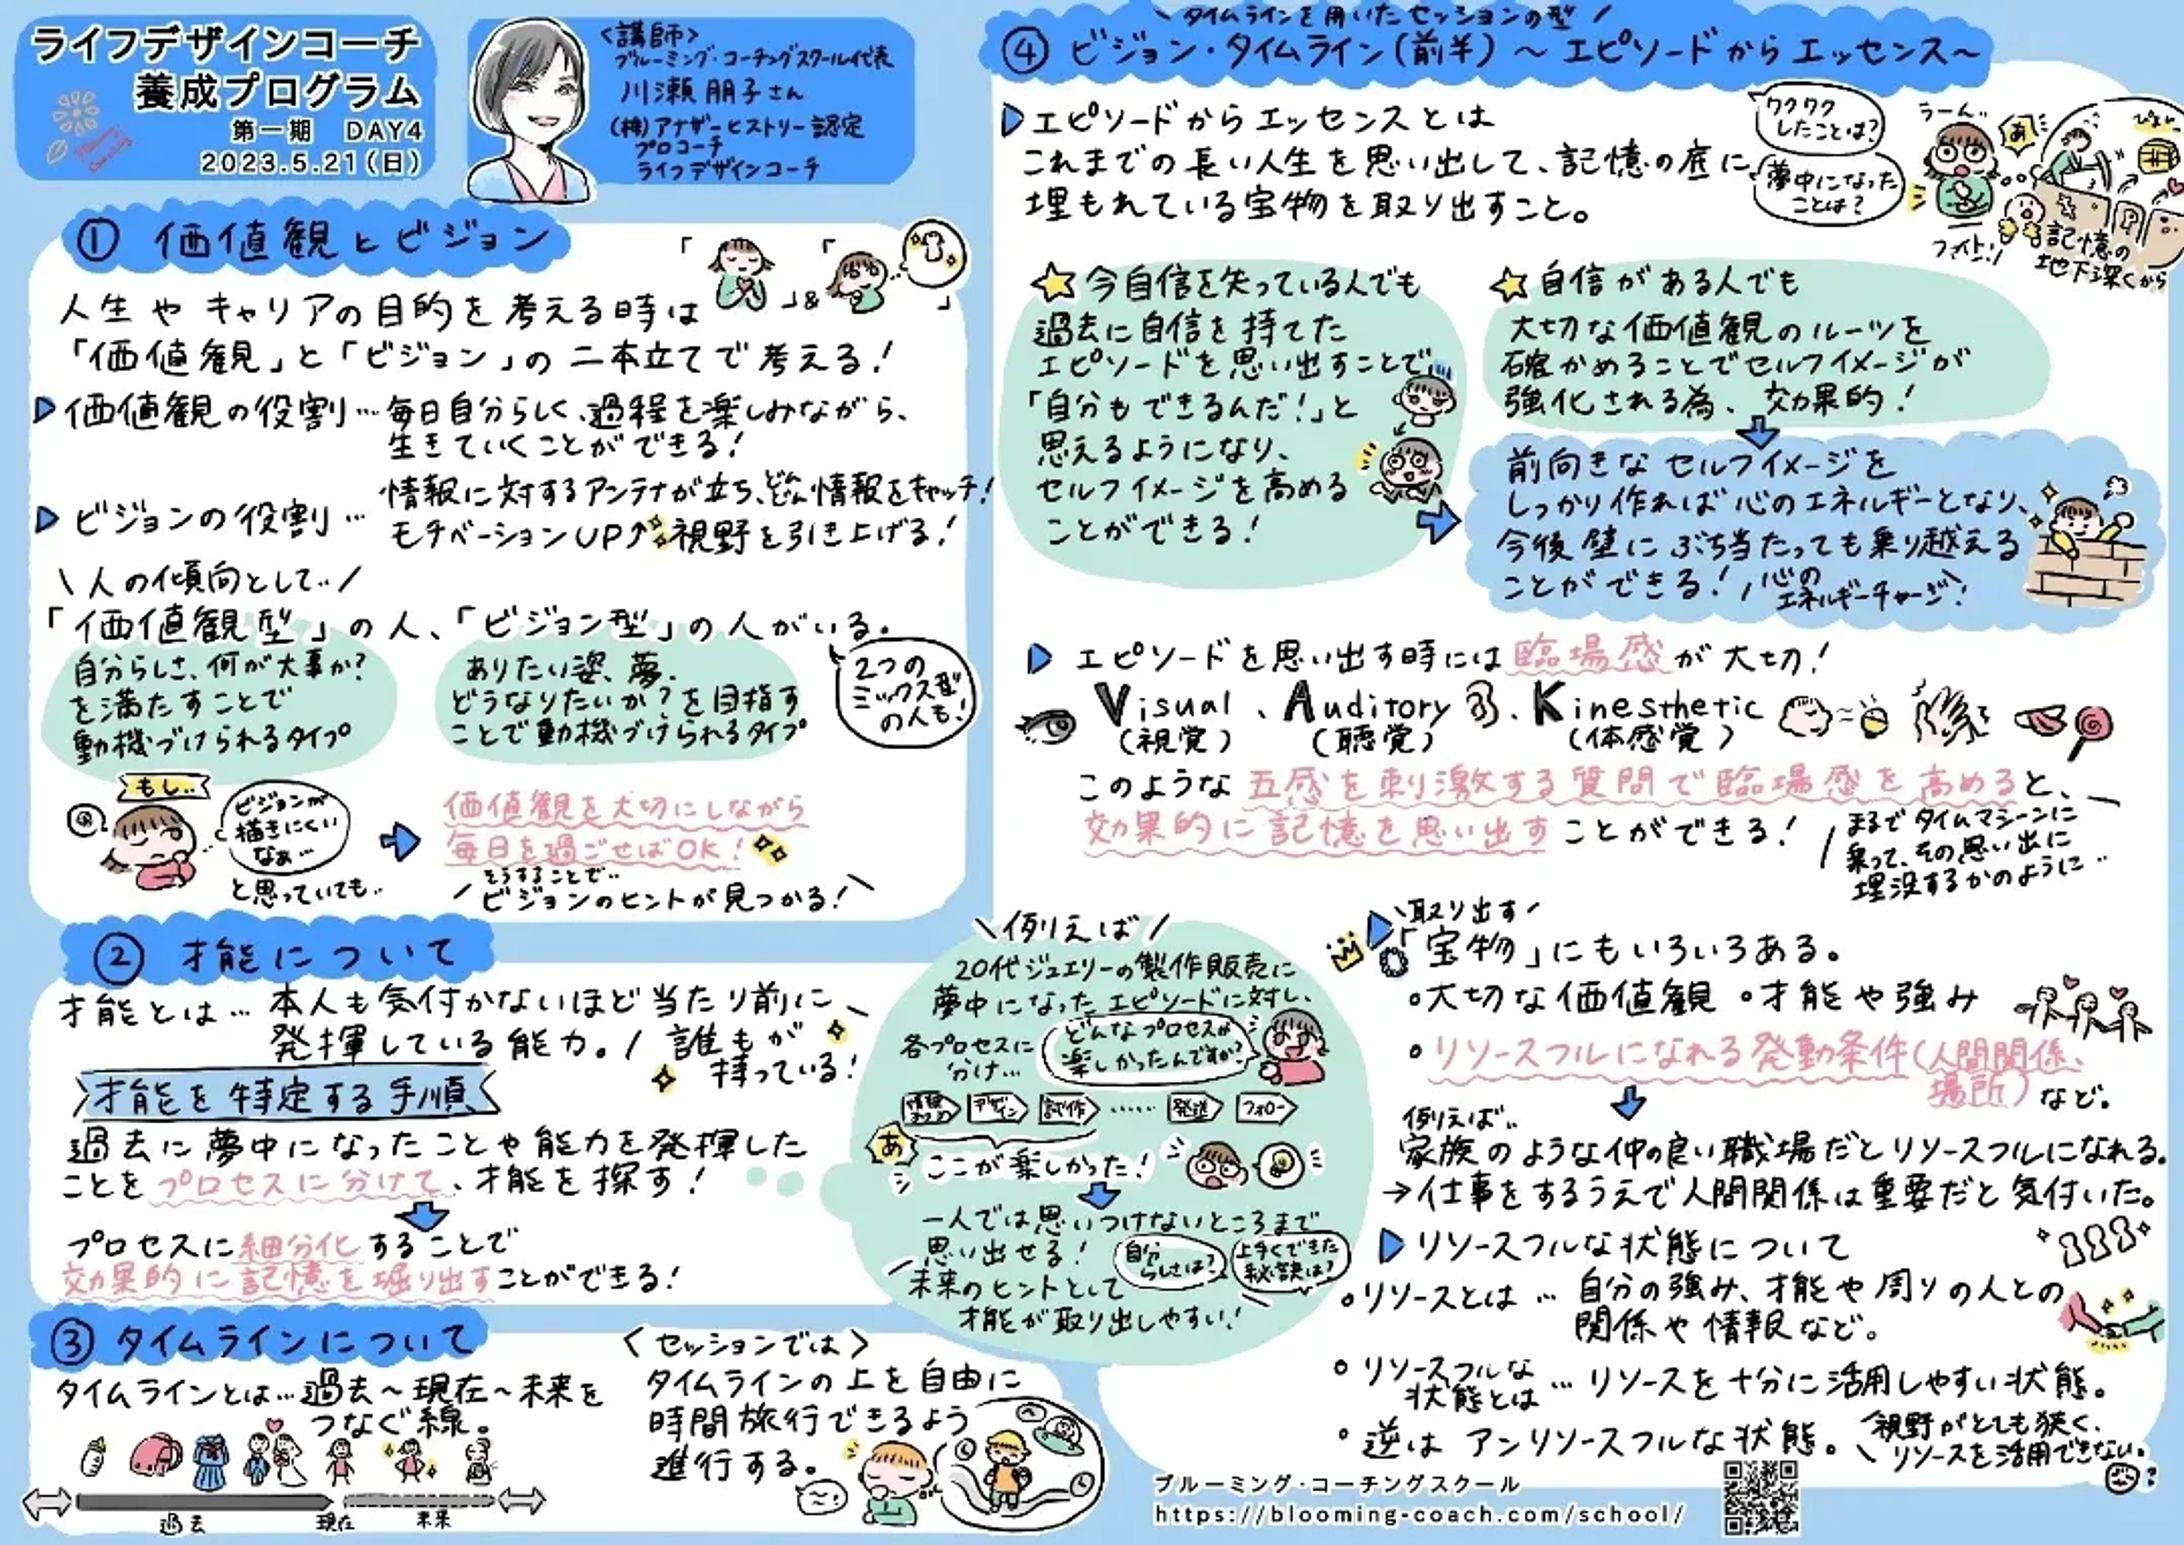 ライフデザインコーチ
養成プログラム
第一期 DAY4
2023.5.21(日)
Blooming
Coaching
<講師>
ブルーミング・コーチングスクール代表
川瀬 朋子さん
(株)アナザーヒストリー認定
プロコーチ
ライフデザインコーチ
① 価値観とビジョン
「 」&「 」
人生やキャリアの目的を考える時は
「価値観」と「ビジョン」の二本立てで考える!
価値観の役割…毎日自分らしく、過程を楽しみながら、
生きていくことができる!
ビジョンの役割…
情報に対するアンテナが立ち、どんどん情報をキャッチ!
モチベーションUP↑視野を引き上げる!
\人の傾向として../
「価値観型」の人、「ビジョン型」の人がいる。
自分らしさ、何が大事か?
を満たすことで
動機づけられるタイプ
ありたい姿、夢、
どうなりたいか?を目指す
ことで動機づけられるタイプ
2つの
ミックス型
の人も!
もし..
ビジョンが
描きにくい
なぁ…
と思っていても..
価値観を大切にしながら
毎日を過ごせばOK!
そうすることで..
ビジョンのヒントが見つかる!
② 才能について
才能とは…本人も気付かないほど当たり前に
発揮している能力。
誰もが
持っている!
才能を特定する手順
過去に夢中になったことや能力を発揮した
ことをプロセスに分けて、才能を探す!
プロセスに細分化することで
効果的に記憶を掘り出すことができる!
\例えば/
20代ジュエリーの製作販売に
夢中になったエピソードに対し、
各プロセスに
分け…
どんなプロセスが
楽しかったんですか?
情報
デザイン
試作
……
発送
フォロー
あ
ここが楽しかった!
一人では思いつけないところまで
思い出せる!
自分
らしさは?
上手くできた
秘訣は?
未来のヒントとして
才能が取り出しやすい!
③ タイムラインについて
タイムラインとは…過去~現在~未来を
つなぐ線。
過去
現在
未来
<セッションでは>
タイムラインの上を自由に
時間旅行できるよう
進行する。
\タイムラインを用いたセッションの型/
④ ビジョン・タイムライン(前半)~エピソードからエッセンス~
エピソードからエッセンスとは
これまでの長い人生を思い出して、記憶の底に
埋もれている宝物を取り出すこと。
ワクワク
したことは?
夢中になった
ことは?
うーん..
あ
ファイト!!
記憶の
地下深くから
今自信を失っている人でも
過去に自信を持てた
エピソードを思い出すことで
「自分もできるんだ!」と
思えるようになり、
セルフイメージを高める
ことができる!
自信がある人でも
大切な価値観のルーツを
確かめることでセルフイメージが
強化される為、効果的!
前向きなセルフイメージを
しっかり作れば心のエネルギーとなり、
今後壁にぶち当たっても乗り越える
ことができる!
心の
エネルギーチャージ!
エピソードを思い出す時には臨場感が大切!
Visual、Auditory、Kinesthetic
(視覚) (聴覚) (体感覚)
このような五感を刺激する質問で臨場感を高めると、
効果的に記憶を思い出すことができる!
まるでタイムマシーンに
乗って、その思い出に
埋没するかのように..
\取り出す/
「宝物」にもいろいろある。
・大切な価値観 ・才能や強み
・リソースフルになれる発動条件(人間関係、
場所)など。
例えば..
家族のような仲の良い職場だとリソースフルになれる。
→仕事をするうえで人間関係は重要だと気付いた。
リソースフルな状態について
・リソースとは…自分の強み、才能や周りの人との
関係や情報など。
・リソースフルな
状態とは…リソースを十分に活用しやすい状態。
・逆はアンリソースフルな状態。
視野がとても狭く、
リソースを活用できない。
ブルーミング・コーチングスクール
https://blooming-coach.com/school/